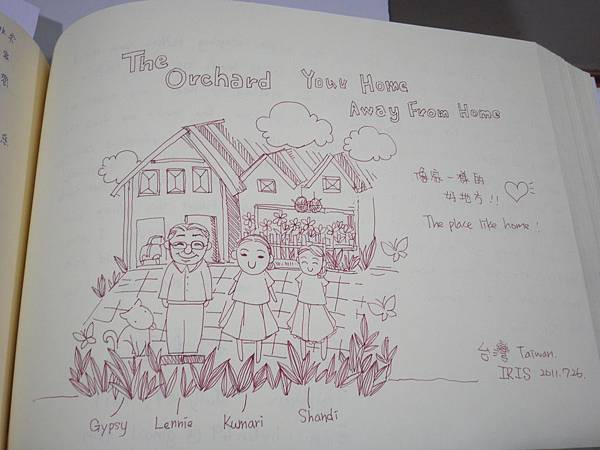 The Orchard Your Home
Away From Home
像家一樣的
好地方!!
The place like home!
台灣 Taiwan.
IRIS 2011.7.26.
Gypsy Lennie Kumari Shandi